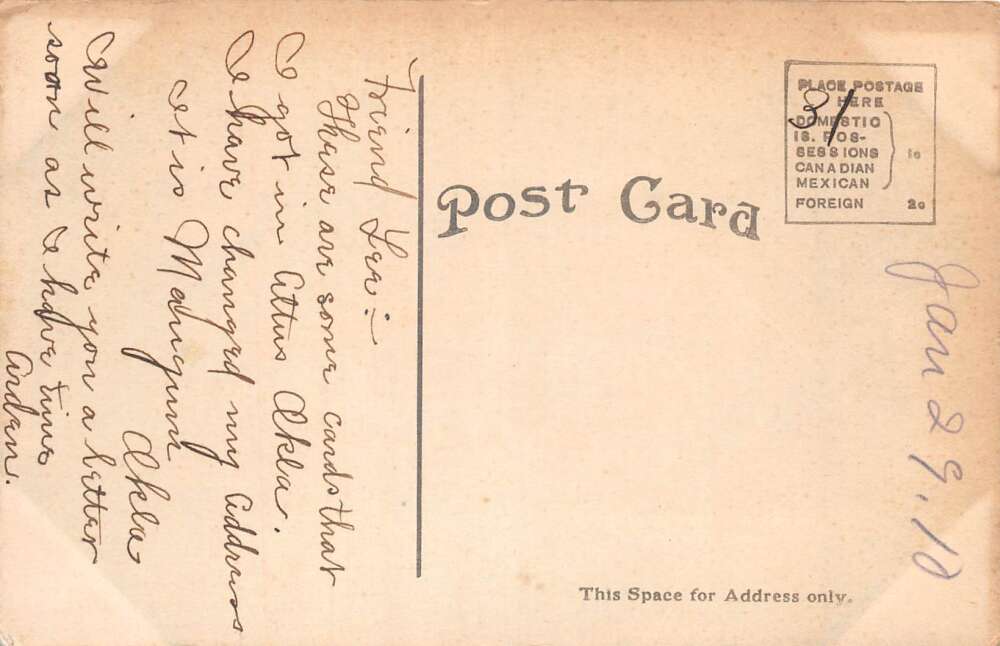 Friend Lee:-
These are some cards that
I got in Altus Okla.
I have changed my address
it is Mangum
Okla
Will write you a letter
soon as I have time
Arden.
Post Card
PLACE POSTAGE
HERE
DOMESTIC
IS. POS-
SESSIONS
CANADIAN
MEXICAN
1c
FOREIGN 2c
31
Jan 29, 10
This Space for Address only.